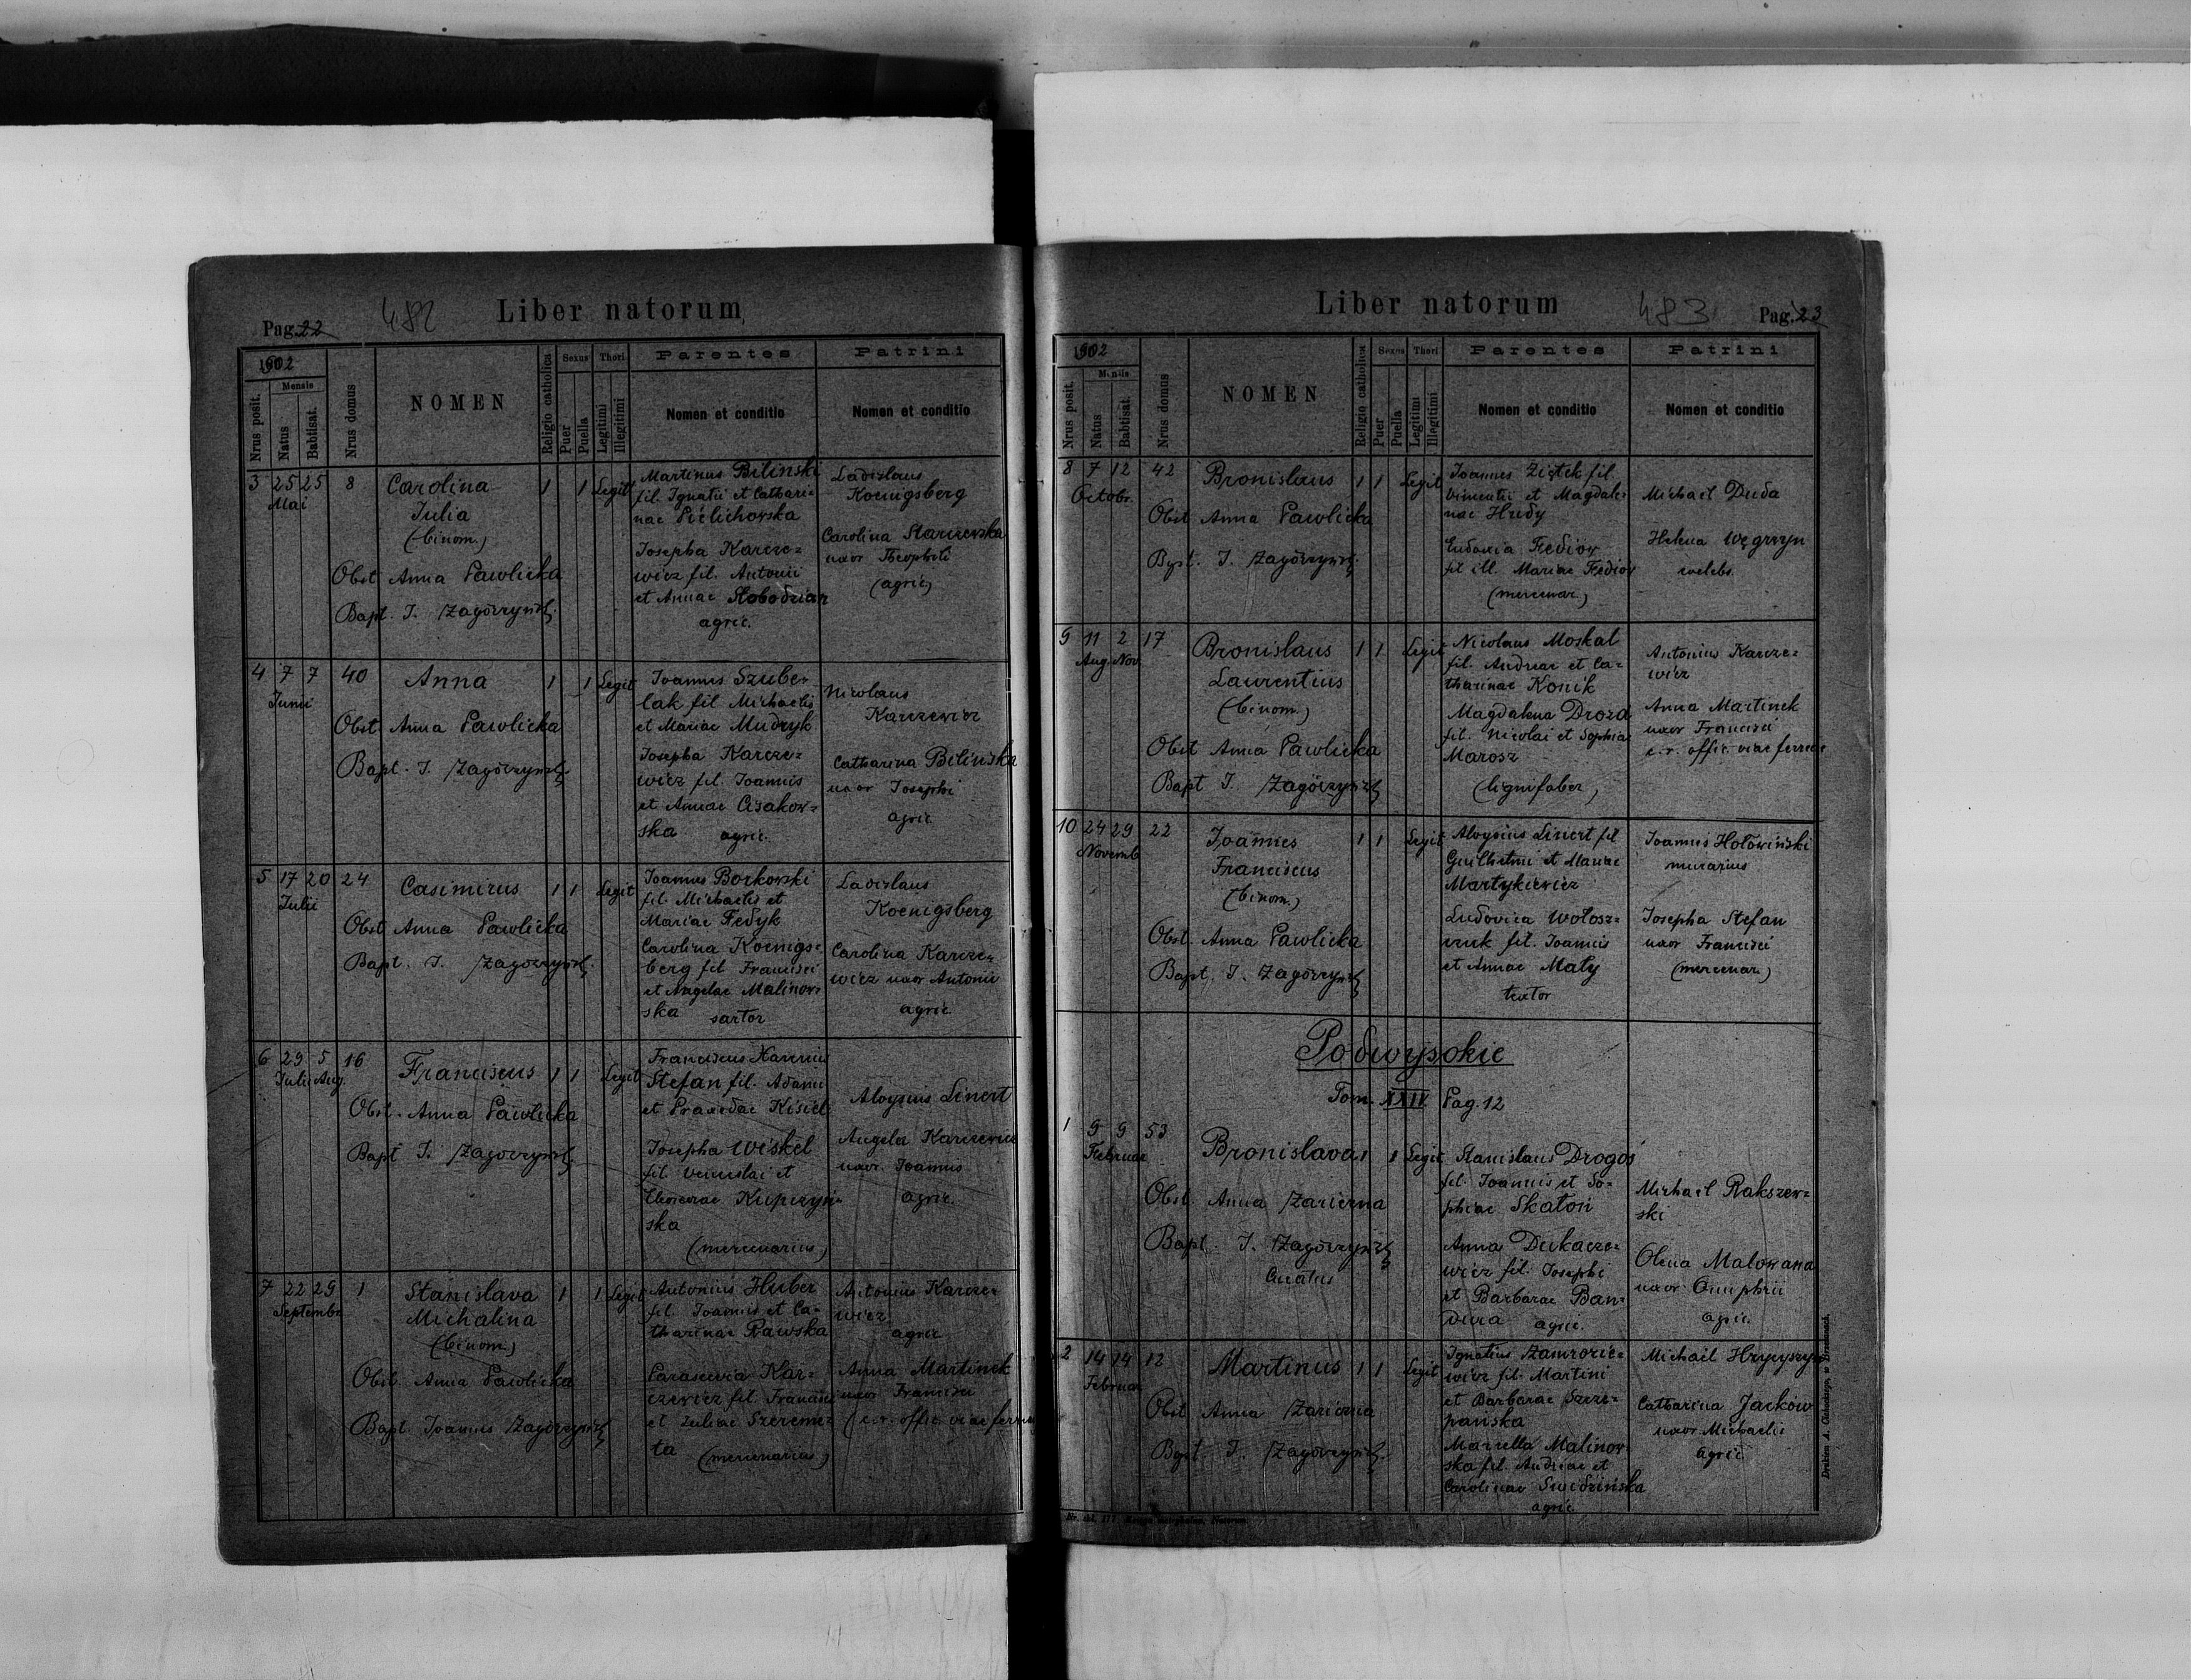 Liber natorum
Pag. 22
482
1902
Nrus posit.
Mensis
Natus
Babtisat.
Nrus domus
NOMEN
Religio catholica
Sexus
Puer
Puella
Thori
Legitimi
Illegitimi
Parentes
Nomen et conditio
Patrini
Nomen et conditio
3 25 25 8
Mai
Carolina
Julia
(binom.)
Obst Anna Pawlicka
Bapt. J. Zagórzyński
1 1 Legit
Martinus Bilinski
fil. Ignatii et Cathari-
nae Pielichowska
Josepha Karcze-
wicz fil. Antonii
et Annae Slobodzian
agric.
Ladislaus
Koenigsberg
Carolina Starzewska
uxor Theophili
(agric)
4 7 7 40
Junii
Anna
Obst Anna Pawlicka
Bapt. J. Zagórzyński
1 1 Legit
Joannes Szube-
lak fil Michaelis
et Mariae Mudryk
Josepha Karcze-
wicz fil. Joannis
et Annae Cisakow-
ska agric.
Nicolaus
Karczewicz
Catharina Bilińska
uxor Josephi
agric.
5 17 20 24
Julii
Casimirus
Obst Anna Pawlicka
Bapt. J. Zagórzyński
1 1 Legit
Joannes Borkowski
fil. Michaelis et
Mariae Fedyk
Carolina Koenigs-
berg fil Francisci
et Angelae Malinow-
ska sartor
Ladislaus
Koenigsberg
Carolina Karcze-
wicz uxor Antonii
agric.
6 29 5 16
Julii Aug.
Franciscus
Obst. Anna Pawlicka
Bapt J. Zagórzyński
1 1 Legit
Franciscus
Stefan fil. Adami
et Praxedae Kisiel
Josepha Weskel
fil. Venceslai et
Kupczyń-
ska
(mercenarius)
Aloysius Linert
Angela Karczewicz
uxor Joannis
agric.
7 22 29 1
Septembr
Stanislava
Michalina
(binom.)
Obst. Anna Pawlicka
Bapt Joannes Zagórzyński
1 1 Legit
Antonius Huber
fil. Joannis et Ca-
tharinae Rawska
Parascevia Kar-
czewicz fil. Francisci
et Juliae Szereme-
ta (mercenarius)
Antonius Karcze-
wicz
agric
Anna Martinek
uxor Francisci
(c.r. offic. viae ferreae
Liber natorum
483
Pag. 23
1902
Nrus posit.
Mensis
Natus
Babtisat.
Nrus domus
NOMEN
Religio catholica
Sexus
Puer
Puella
Thori
Legitimi
Illegitimi
Parentes
Nomen et conditio
Patrini
Nomen et conditio
8 7 12 42
Octobr.
Bronislaus
Obst Anna Pawlicka
Bapt. J. Zagórzyński
1 1 Legit
Joannes Ziętek fil.
Vincentii et Magdale-
nae Hudy
Eudoxia Fediow
fil ill. Mariae Fediow
(mercenar)
Michael Duda
Helena Węgrzyn
celebs.
9 11 2 17
Aug. Nov.
Bronislaus
Laurentius
(binom.)
Obst Anna Pawlicka
Bapt J. Zagórzyński
1 1 Legit
Nicolaus Moskal
fil. Andreae et Ca-
tharinae Konik
Magdalena Drozd
fil. Nicolai et Sophiae
Marosz
(lignifaber)
Antonius Karcze-
wicz
Anna Martinek
uxor Francisci
c.r. offic. viae ferreae
10 24 29 22
Novemb
Joannes
Franciscus
(binom.)
Obst. Anna Pawlicka
Bapt. J. Zagórzyński
1 1 Legit
Aloysius Linert fil
Guilhelmi et Mariae
Martykiewicz
Ludovica Wołosz-
czuk fil. Joannis
et Annae Mały
textor
Joannes Hołowiński
murarius
Josepha Stefan
uxor Francisci
(mercenar.)
Podwysokie
Tom. XXIV Pag. 12
1 9 9 53
Februar
Bronislava
Obst. Anna Zarierna
Bapt. J. Zagórzyński
Curatus
1 1 Legit
Stanislaus Drogoś
fil. Joannis et So-
phiae Skatoń
Anna Dukacze-
wicz fil. Josephi
et Barbarae Ban-
dura agric.
Michael Rakszew-
ski
Olena Malowana
uxor Onuphrii
agric.
2 14 14 12
Februar
Martinus
Obst Anna Zarierna
Bapt J. Zagórzyński
1 1 Legit
Ignatius Zamrozie-
wicz fil. Martini
et Barbarae Szcze-
pańska
Marcella Malinow-
ska fil. Andreae et
Carolinae Swidzińska
agric.
Michael Hrycyszyn
Catharina Jacków
uxor Michaelis
agric.